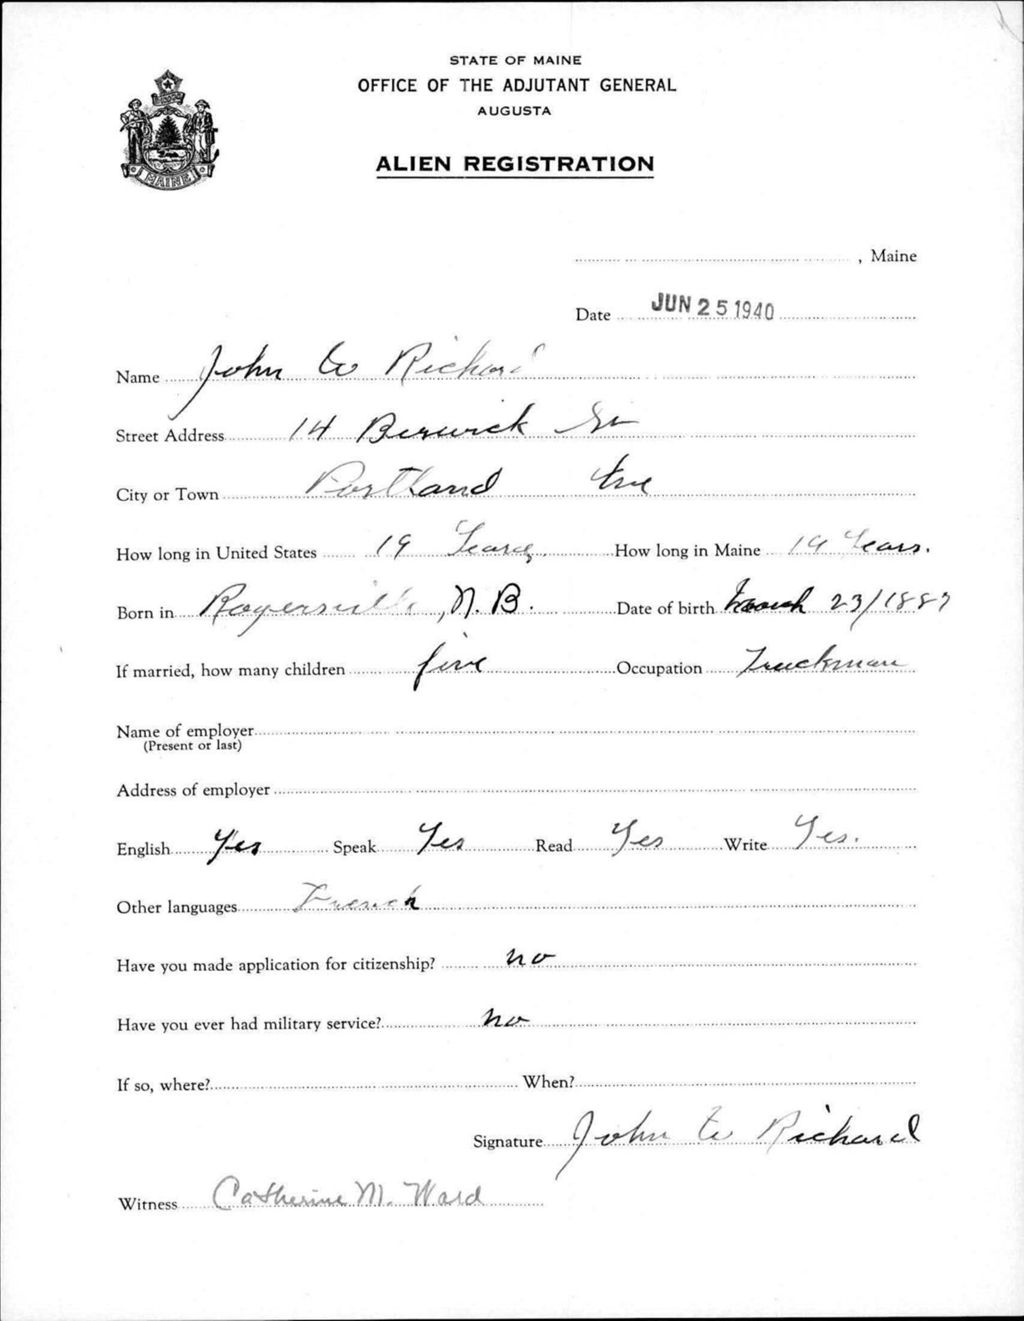 STATE OF MAINE
OFFICE OF THE ADJUTANT GENERAL
AUGUSTA
ALIEN REGISTRATION
MAINE
, Maine
Date JUN 25 1940
Name John W Richard
Street Address 14 Berwick St
City or Town Portland Me
How long in United States 19 Years, How long in Maine 19 Years.
Born in Rogersville, N. B. Date of birth March 23/1887
If married, how many children five Occupation Truckman
Name of employer
(Present or last)
Address of employer
English Yes Speak Yes Read Yes Write Yes.
Other languages French
Have you made application for citizenship? no
Have you ever had military service? no
If so, where? When?
Signature John W Richard
Witness Catherine M. Ward